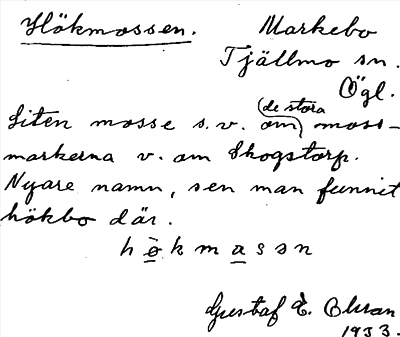 Hökmossen. Markebo
Tjällmo sn.
Ögl.
Liten mosse s.v. om (de stora) moss-
markerna v. om Skogstorp.
Nyare namn, sen man funnit
hökbo där.
hökmassən
Gustaf E. Olsson
1933.